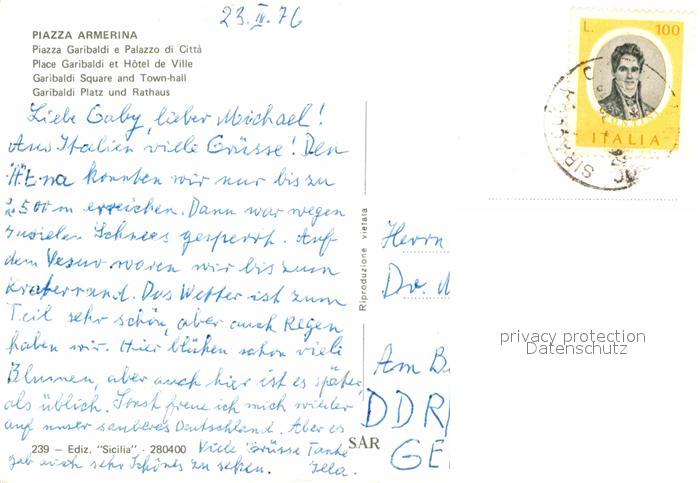 23. IV. 76
PIAZZA ARMERINA
Piazza Garibaldi e Palazzo di Città
Place Garibaldi et Hôtel de Ville
Garibaldi Square and Town-hall
Garibaldi Platz und Rathaus
Liebe Gaby, lieber Michael!
Aus Italien viele Grüsse! Den
Ätna konnten wir nur bis zu
2500 m erreichen. Dann war wegen
zuvielen Schnees gesperrt. Auf
dem Vesuv waren wir bis zum
Kraterrand. Das Wetter ist zum
Teil sehr schön, aber auch Regen
haben wir. Hier blühen schon viele
Blumen, aber auch hier ist es später,
als üblich. Sonst freue ich mich wieder
auf unser sauberes Deutschland. Aber es
gab auch sehr Schönes zu sehen.
Viele Grüsse Tante
239 – Ediz. "Sicilia" - 280400
SAR
Riproduzione vietata
L. 100
ITALIA
Herrn
Dr. M
Am B
DDR
GE
privacy protection
Datenschutz